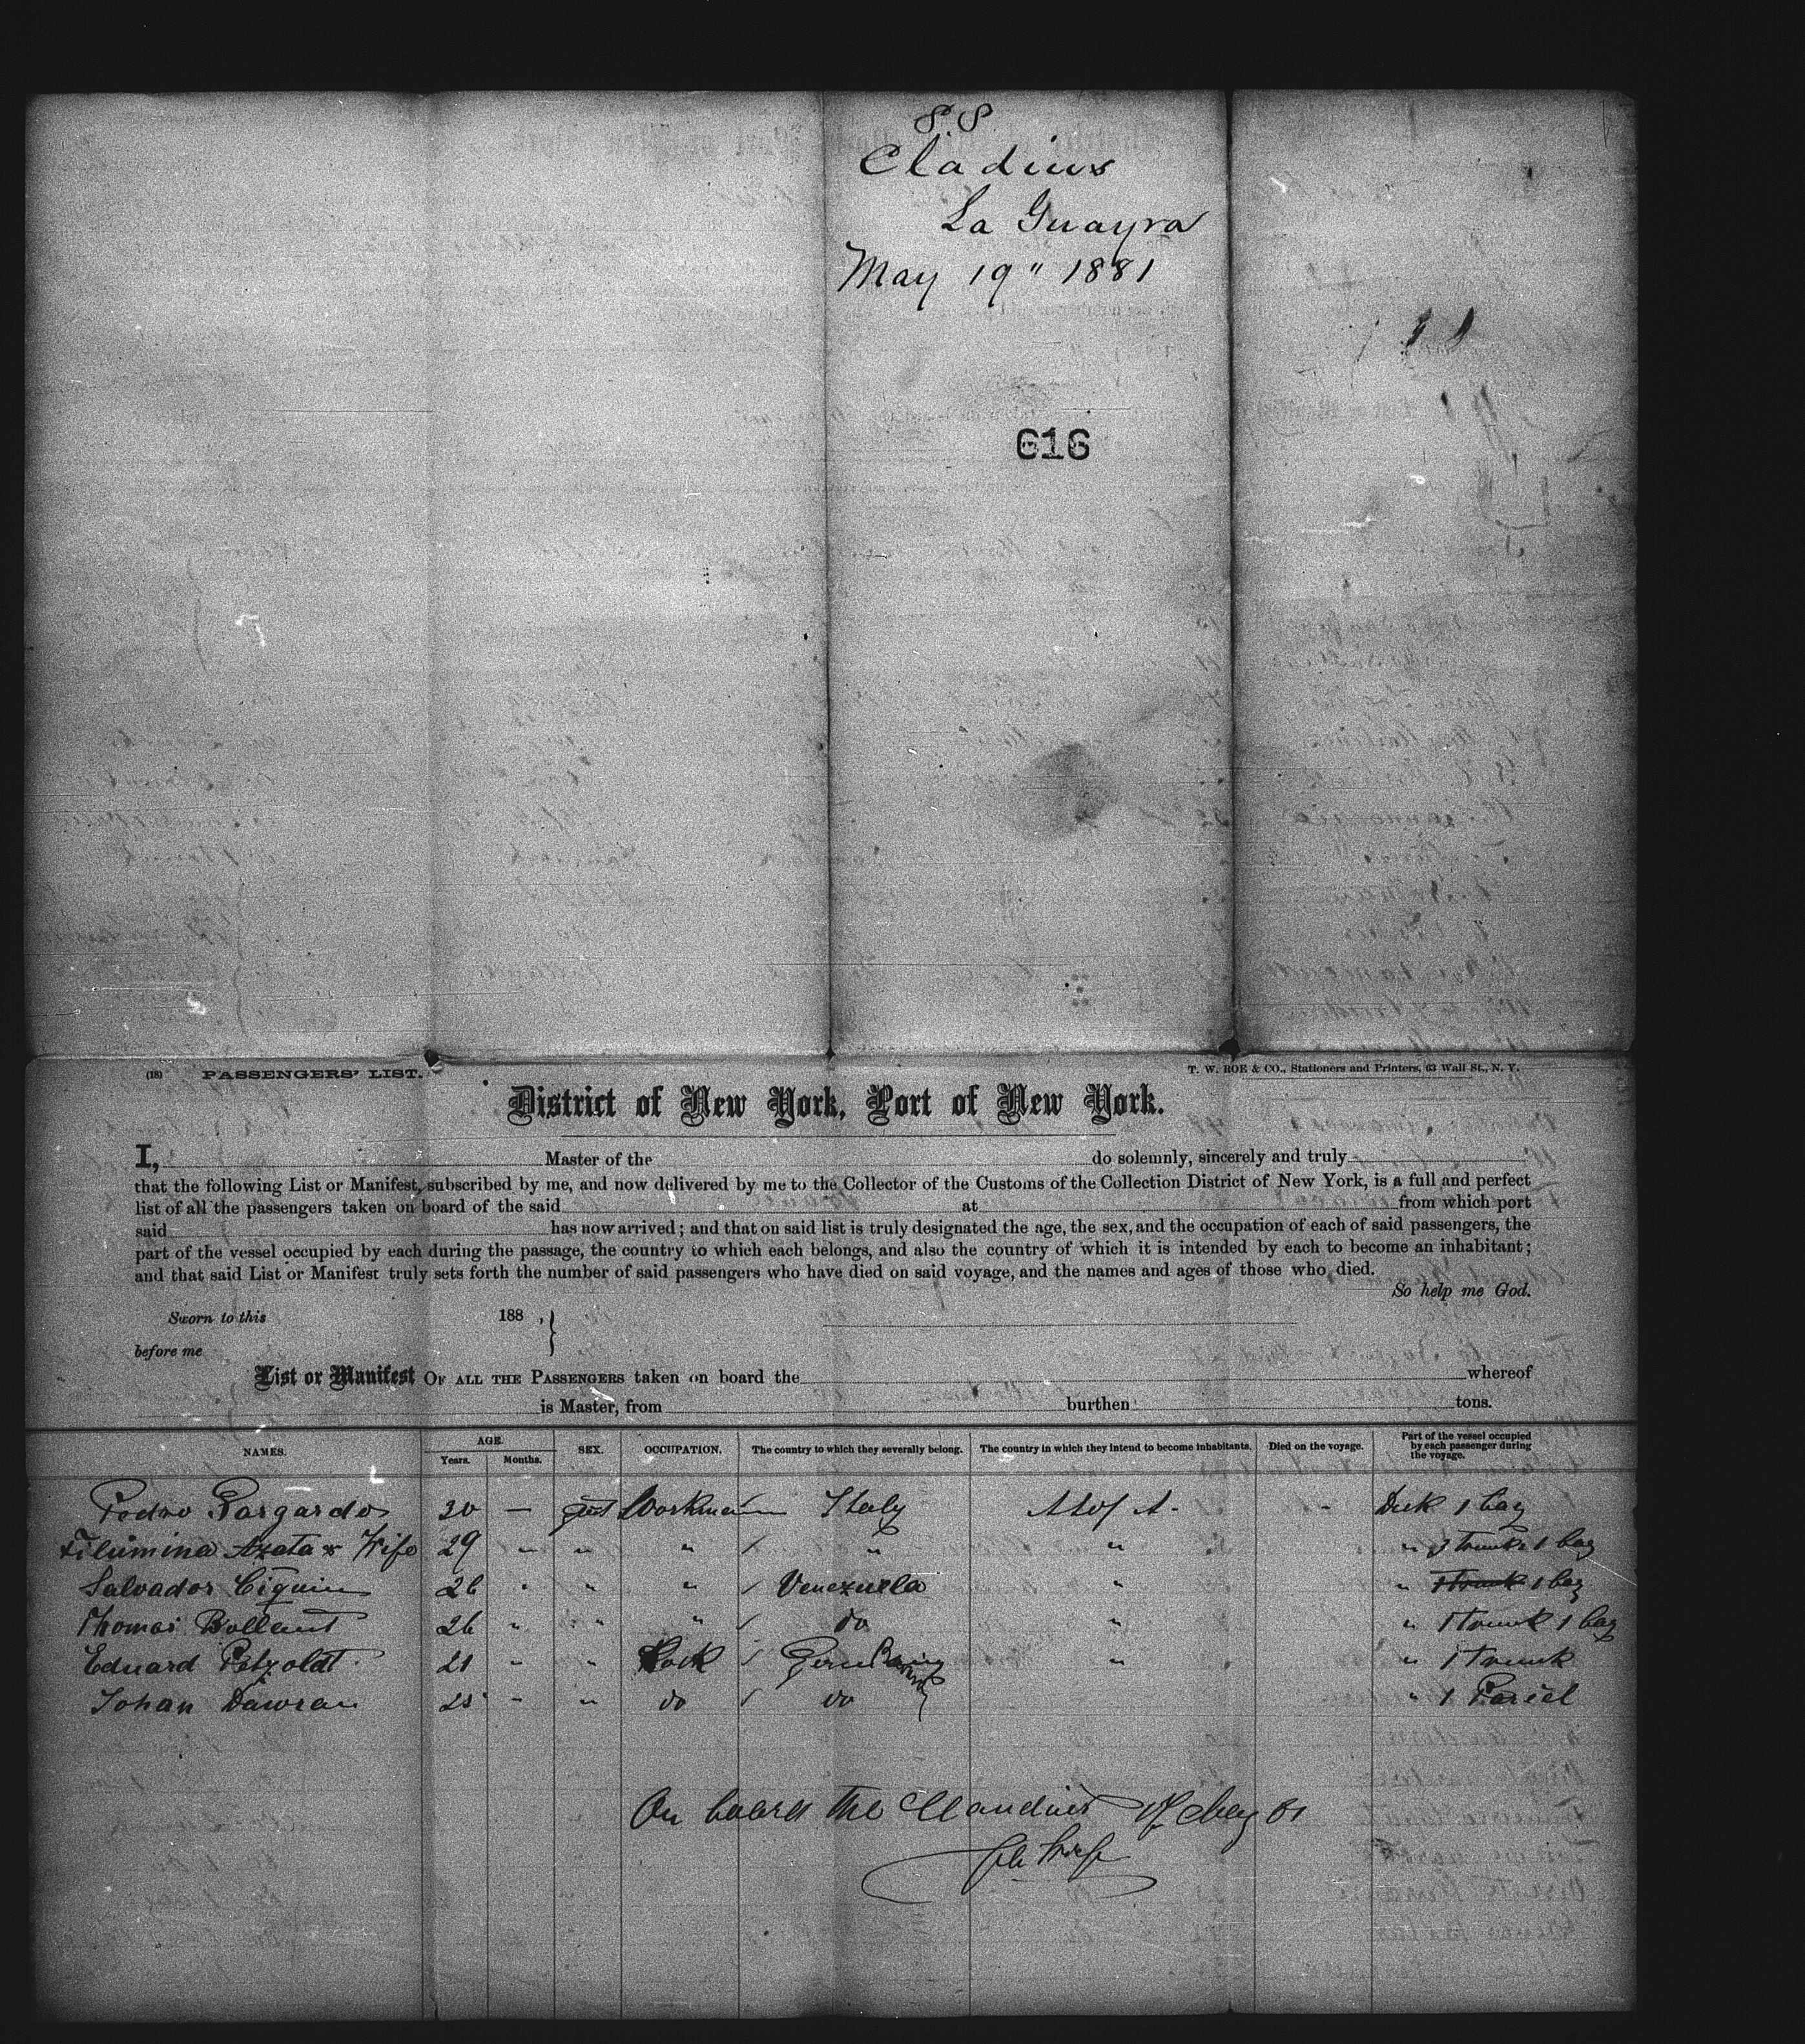 SS
Cladius
La Guayra
May 19" 1881
616
(18) PASSENGERS' LIST. T. W. ROE & CO., Stationers and Printers, 63 Wall St., N. Y.
District of New York, Port of New York.
I, Master of the do solemnly, sincerely and truly
that the following List or Manifest, subscribed by me, and now delivered by me to the Collector of the Customs of the Collection District of New York, is a full and perfect
list of all the passengers taken on board of the said at from which port
said has now arrived; and that on said list is truly designated the age, the sex, and the occupation of each of said passengers, the
part of the vessel occupied by each during the passage, the country to which each belongs, and also the country of which it is intended by each to become an inhabitant;
and that said List or Manifest truly sets forth the number of said passengers who have died on said voyage, and the names and ages of those who died.
So help me God.
Sworn to this 188 , }
before me
List or Manifest OF ALL THE PASSENGERS taken on board the whereof
is Master, from burthen tons.
NAMES. AGE. Years. Months. SEX. OCCUPATION. The country to which they severally belong. The country in which they intend to become inhabitants. Died on the voyage. Part of the vessel occupied by each passenger during the voyage.
Pedro Gargardo 30 — Workman Italy - Deck 1 bag
Filumina Azata & Wife 29 " " " " " " trunk 1 bag
Salvador 26 " " " Venezuela " " 1 trunk 1 bag
Thomas Bollant 26 " " " do " " 1 trunk 1 bag
Eduard Petzoldt 21 " " Germany " " 1 trunk
Johan Dawran 25 " " do do " 1 Parcel
On board the Claudius